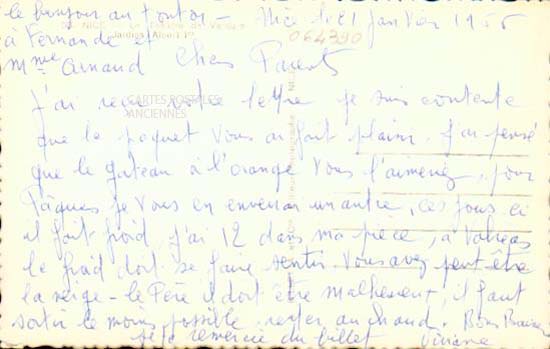 le bonjour au tonton - Nice le 21 Janvier 1955
à Fernande et
064390
Mme Arnaud Chers Parents
J'ai reçu votre lettre je suis contente
CARTES POSTALES
ANCIENNES
que le paquet vous a fait plaisir. J'ai pensé
que le gateau à l'orange vous l'aimeriez, pour
Pâques je vous en enverrai un autre, ces jours ci
il fait froid, j'ai 12 dans ma pièce, a
le froid doit se faire sentir. Vous avez peut être
la neige - le Père il doit être malheureux, il faut
sortir le moins possible rester au chaud. Bons Baisers
je te remercie du billet Viviane